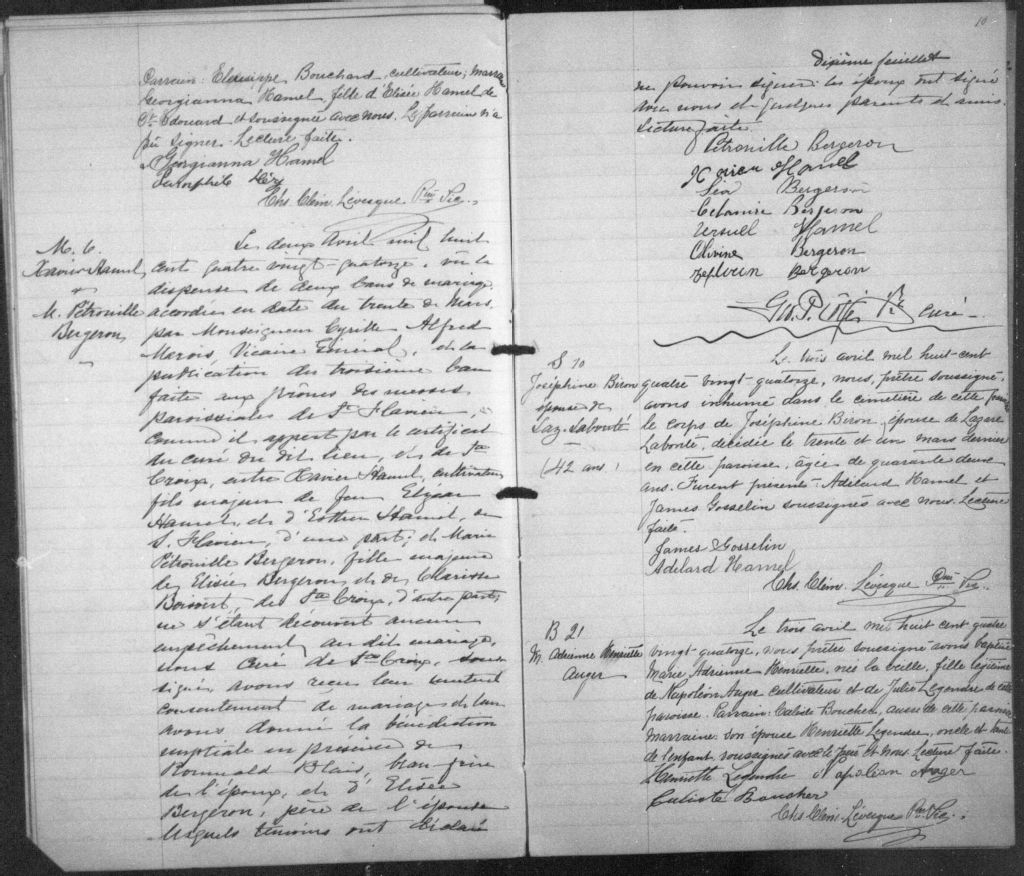 Parrain: Eleusippe Bouchard, cultivateur; Marraine
Georgianna Hamel, fille d'Elisée Hamel de
St Edouard et soussignée avec nous. Le parrain n'a
pu signer. Lecture faite.
Georgianna Hamel
Chs. Clém. Lévesque Ptre Vic.
M. 6.
Xavier Hamel
&
M. Pétronille
Bergeron
Le deux Avril mil huit
cent quatre vingt-quatorze, vu la
dispense de deux bans de mariage,
accordée en date du trente de Mars
par Monseigneur Cyrille Alfred
Marois, Vicaire Général, et la
publication du troisième ban
faite aux prônes des messes
paroissiales de St Flavien,
comme il appert par le certificat
du curé du dit lieu, et de Ste
Croix, entre Xavier Hamel, cultivateur,
fils majeur de Jean Elzéar
Hamel, et d'Esther Hamel, de
St. Flavien, d'une part; et Marie
Pétronille Bergeron, fille majeure
de Elisée Bergeron et de Clarisse
Boisvert, de Ste Croix, d'autre part;
ne s'étant découvert aucun
empêchement au dit mariage,
nous Curé de Ste Croix, sous-
signé avons reçu leur mutuel
consentement de mariage et leur
avons donné la bénédiction
nuptiale en présence de
Romuald Blais, beau-frère
de l'époux, et d'Elisée
Bergeron, père de l'épouse
lesquels témoins ont déclaré
10
Dixième feuillet
ne pouvoir signer: les époux ont signé
avec nous et quelques parents et amis.
Lecture faite.
Pétronille Bergeron
Xavier Hamel
Léa Bergeron
Célanire Bergeron
Ursule Hamel
Olivine Bergeron
Zephirin Bergeron
Ptre curé
S 10
Joséphine Biron
épouse de
Laz. Labonté
(42 ans)
Le trois avril mil huit-cent
quatre vingt-quatorze, nous, prêtre soussigné,
avons inhumé dans le cimetière de cette paroisse
le corps de Joséphine Biron, épouse de Lazare
Labonté, décédée le trente et un mars dernier
en cette paroisse, âgée de quarante deux
ans. Furent présents: Adélard Hamel et
James Gosselin soussignés avec nous. Lecture
faite.
James Gosselin
Adelard Hamel
Chs. Clém. Lévesque Ptre Vic.
B 21
M. Adrienne Henriette
Auger
Le trois avril mil huit cent quatre
vingt quatorze, nous prêtre soussigné avons baptisé
Marie, Adrienne Henriette, née la veille, fille légitime
de Napoléon Auger cultivateur et de Julie Legendre de cette
paroisse. Parrain: Calixte Boucher, aussi de cette paroisse
Marraine: son épouse Henriette Legendre, oncle et tante
de l'enfant, soussignés avec le père et nous. Lecture faite.
Henriette Legendre Napoléon Auger
Calixte Boucher
Chs. Clém. Lévesque Ptre Vic.